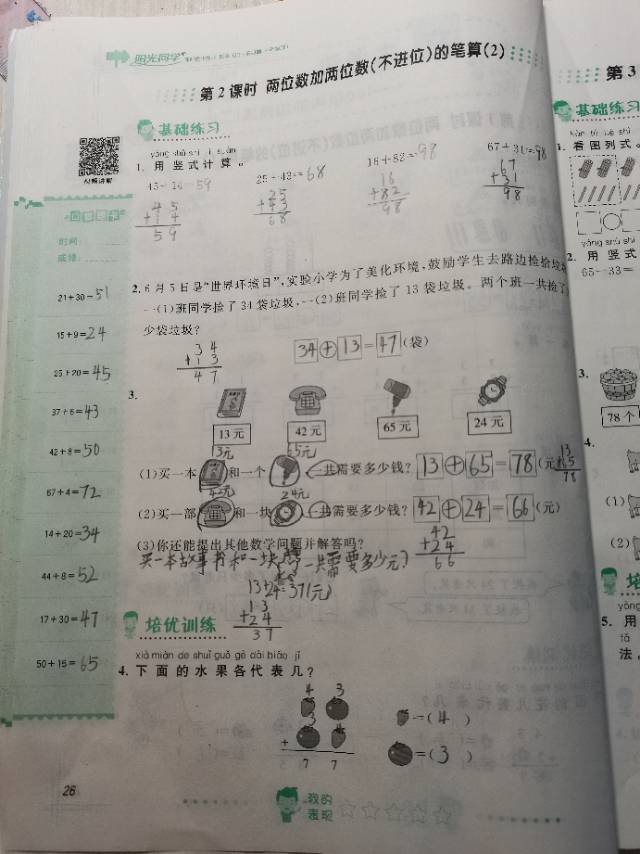 阳光同学
第2课时 两位数加两位数(不进位)的笔算(2)
基础练习
yòng shù shì jì suàn
1. 用竖式计算。
45+14=59
25+43=68
16+82=98
67+31=98
45
+14
59
25
+43
68
16
+82
98
67
+31
98
时间:
成绩:
21+30=51
15+9=24
25+20=45
37+6=43
42+8=50
67+4=72
14+20=34
44+8=52
17+30=47
50+15=65
2. 6月5日是“世界环境日”,实验小学为了美化环境,鼓励学生去路边捡拾垃
一(1)班同学捡了34袋垃圾,一(2)班同学捡了13袋垃圾。两个班一共捡了
少袋垃圾?
34
+13
47
34+13=47(袋)
3.
13元
42元
65元
24元
13元
65元
(1)买一本 和一个 一共需要多少钱? 13+65=78(元)
13
+65
78
42元
24元
(2)买一部 和一块 一共需要多少钱? 42+24=66(元)
(3)你还能提出其他数学问题并解答吗?
42
+24
66
买一本故事书和一块 一共需要多少元?
13+24=37(元)
13
+24
37
培优训练
xià miàn de shuǐ guǒ gè dài biǎo jǐ
4. 下面的水果各代表几?
4 3
3
+
7 7
=( 4 )
=( 3 )
26
我的
表现
第3
基础练习
1. 看图列式。
yòng shù shì
2. 用竖式
65-33=
3.
78个
4.
(1)
(2)
培
yòng
5. 用
fǎ
法,